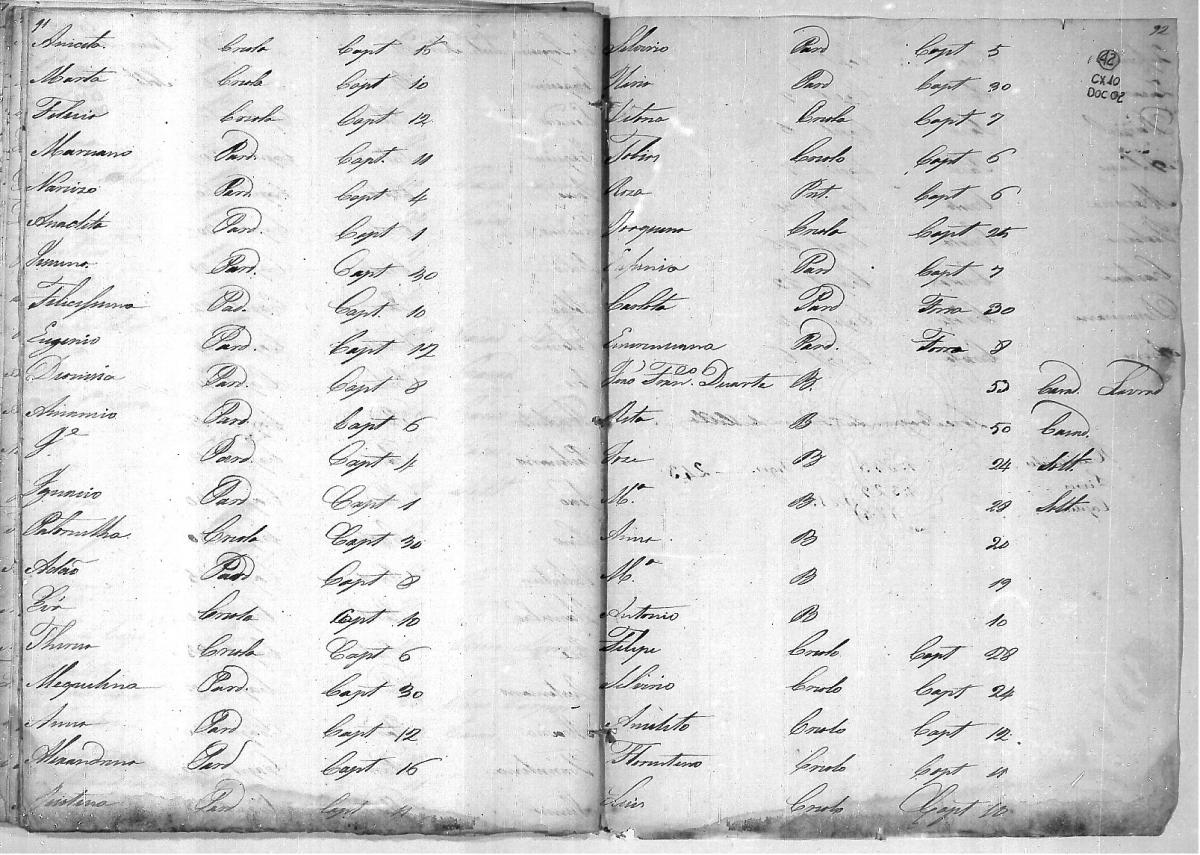 91
Aniceta Criola Capt 16
Marta Criola Capt 10
Felicio Criolo Capt 12
Marciano Pard. Capt. 11
Narcizo Pard. Capt 4
Anacleta Pard. Capt 1
Pard. Capt 30
Felicissima Pad. Capt 10
Eugenio Pard. Capt 12
Dionizia Pard. Capt 8
Pard. Capt 6
Pard. Capt 4
Ignacio Pard Capt 1
Criola Capt 30
Adão Pard Capt 8
Criola Capt 10
Criola Capt 6
Mequelina Pard. Capt 30
Anna Pard Capt 12
Alexandrina Pard Capt 16
Justina Pard Capt
92
42
CX10
DOC 02
Silvirio Pard Capt 5
Pard Capt 30
Vitoria Criola Capt 7
Tobias Criolo Capt 6
Roza Prt. Capt 6
Criola Capt 25
Pard Capt 7
Carlota Pard Forra 30
Pard. Forra 8
Jozé Fran.co Duarte B 53 Cazd. Lavrad
Rita B 50 Cazd.
Joze B 24 Solt.
M.a B 28 Solt
Anna B 20
M.a B 19
Antonio B 10
Felipe Criolo Capt 28
Silvirio Criolo Capt 24
Aniceto Criolo Capt 12
Florentino Criolo Capt 11
Luis Criolo Capt 10